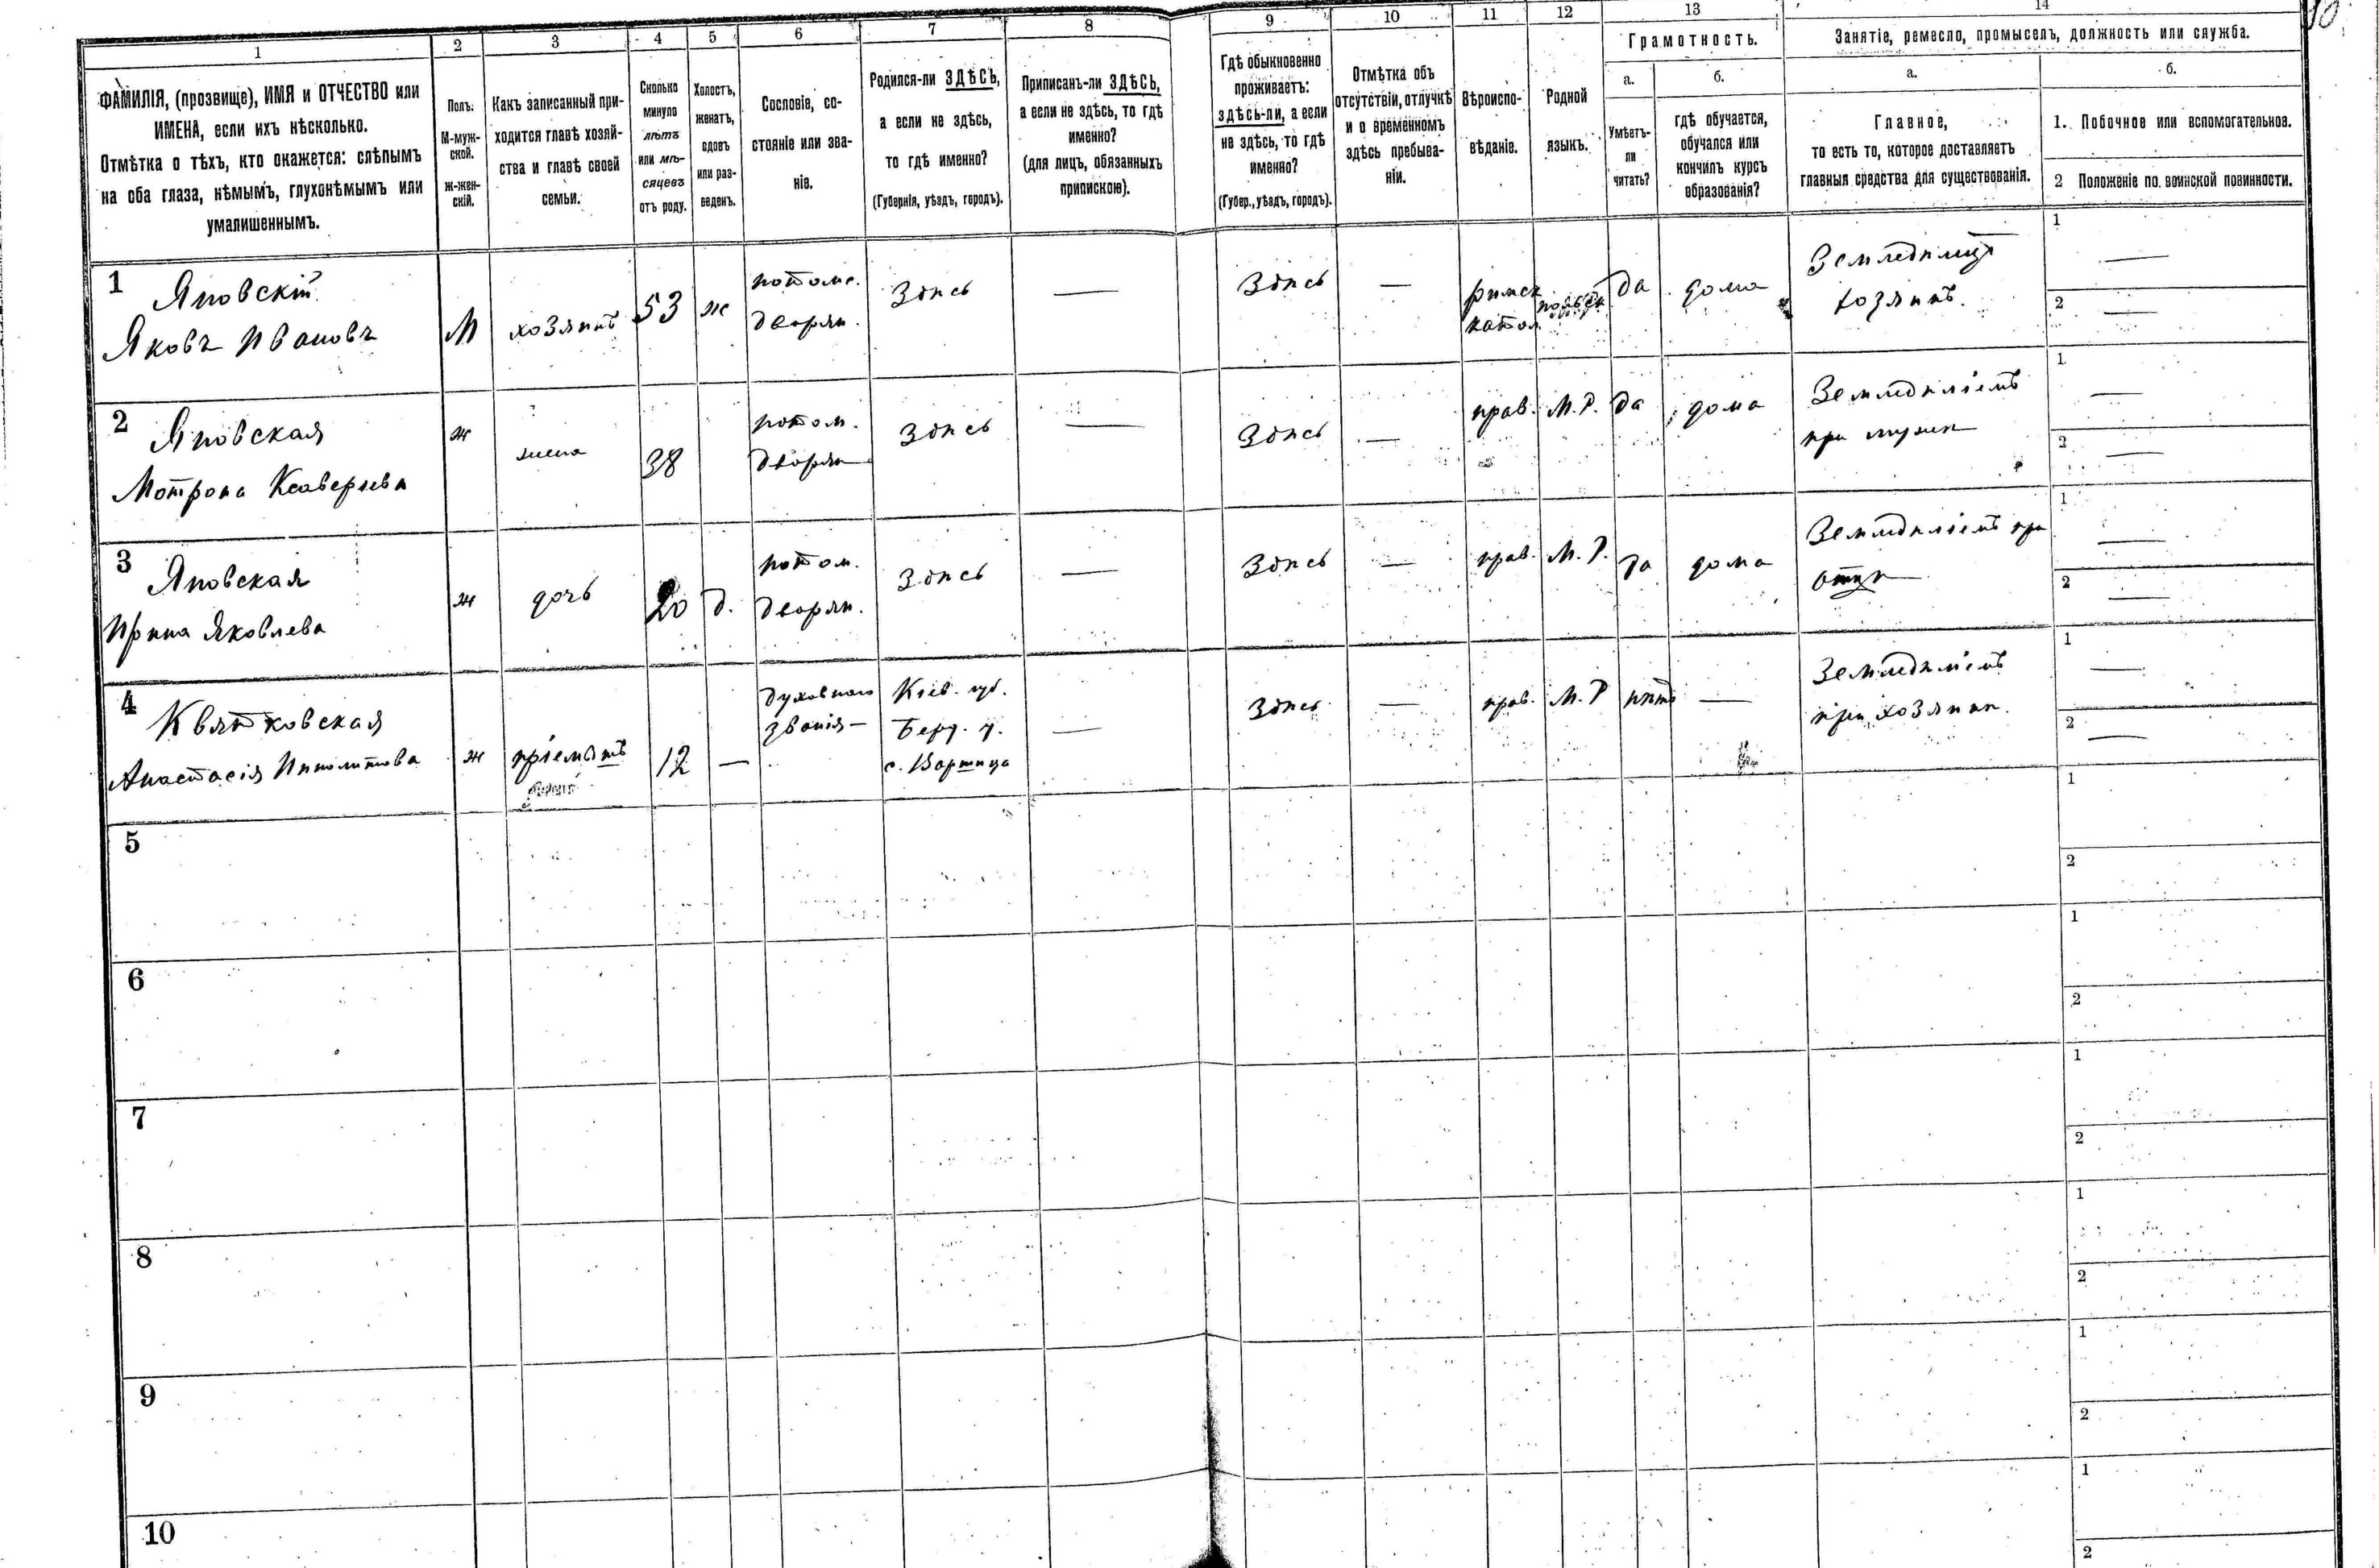 1 2 3 4 5 6 7 8 9 10 11 12 13 14
ФАМИЛІЯ, (прозвище), ИМЯ и ОТЧЕСТВО или
ИМЕНА, если ихъ нѣсколько.
Отмѣтка о тѣхъ, кто окажется: слѣпымъ
на оба глаза, нѣмымъ, глухонѣмымъ или
умалишеннымъ.
Полъ.
М-муж-
ской.
Ж-жен-
скій.
Какъ записанный при-
ходится главѣ хозяй-
ства и главѣ своей
семьи.
Сколько
минуло
лѣтъ
или мѣ-
сяцевъ
отъ роду.
Холостъ,
женатъ,
вдовъ
или раз-
веденъ.
Сословіе, со-
стояніе или зва-
ніе.
Родился-ли ЗДѢСЬ,
а если не здѣсь,
то гдѣ именно?
(Губернія, уѣздъ, городъ).
Приписанъ-ли ЗДѢСЬ,
а если не здѣсь, то гдѣ
именно?
(для лицъ, обязанныхъ
припискою).
Гдѣ обыкновенно
проживаетъ:
здѣсь-ли, а если
не здѣсь, то гдѣ
именно?
(Губер., уѣздъ, городъ).
Отмѣтка объ
отсутствіи, отлучкѣ
и о временномъ
здѣсь пребыва-
ніи.
Вѣроиспо-
вѣданіе.
Родной
языкъ.
Грамотность.
а.
Умѣетъ-
ли
читать?
б.
гдѣ обучается,
обучался или
кончилъ курсъ
образованія?
Занятіе, ремесло, промыселъ, должность или служба.
а.
Главное,
то есть то, которое доставляетъ
главныя средства для существованія.
б.
1. Побочное или вспомогательное.
2 Положеніе по воинской повинности.
1
Яновскій
Яковъ Ивановъ
М
хозяинъ
53
ж
потомс.
дворян.
Здѣсь
—
Здѣсь
—
римск
катол.
польск
да
дома
Земледѣлец
хозяинъ.
1 —
2 —
2
Яновская
Мотрона Ксаверьева
ж
жена
38
потом.
дворян
Здѣсь
—
Здѣсь
—
прав.
М. Р.
да
дома
Земледѣліемъ
при мужѣ
1 —
2 —
3
Яновская
Ирина Яковлева
ж
дочь
20
д.
потом.
дворян.
Здѣсь
—
Здѣсь
—
прав.
М. Р.
да
дома
Земледѣліемъ при
отцѣ
1 —
2 —
4
Квятковская
Анастасія Ипполитова
ж
пріемышъ
12
—
духовного
званія —
Кіев. губ.
Берд. у.
—
Здѣсь
—
прав.
М. Р
нѣтъ
—
Земледѣліемъ
при хозяинѣ.
1 —
2 —
5
1
2
6
1
2
7
1
2
8
1
2
9
1
2
10
1
2